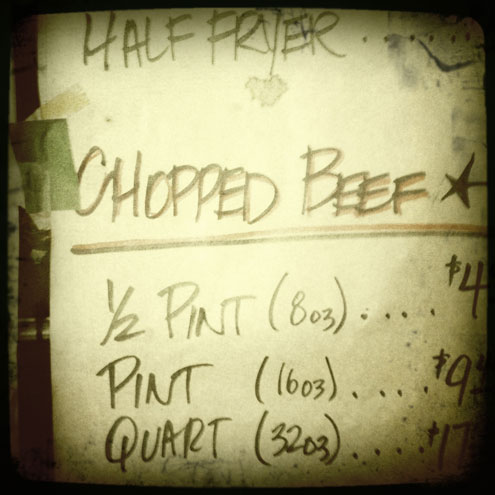 HALF FRYER . . . . .
CHOPPED BEEF ★
½ PINT (8oz) . . . . . $4
PINT (16oz) . . . . $9
QUART (32oz) . . . . $17